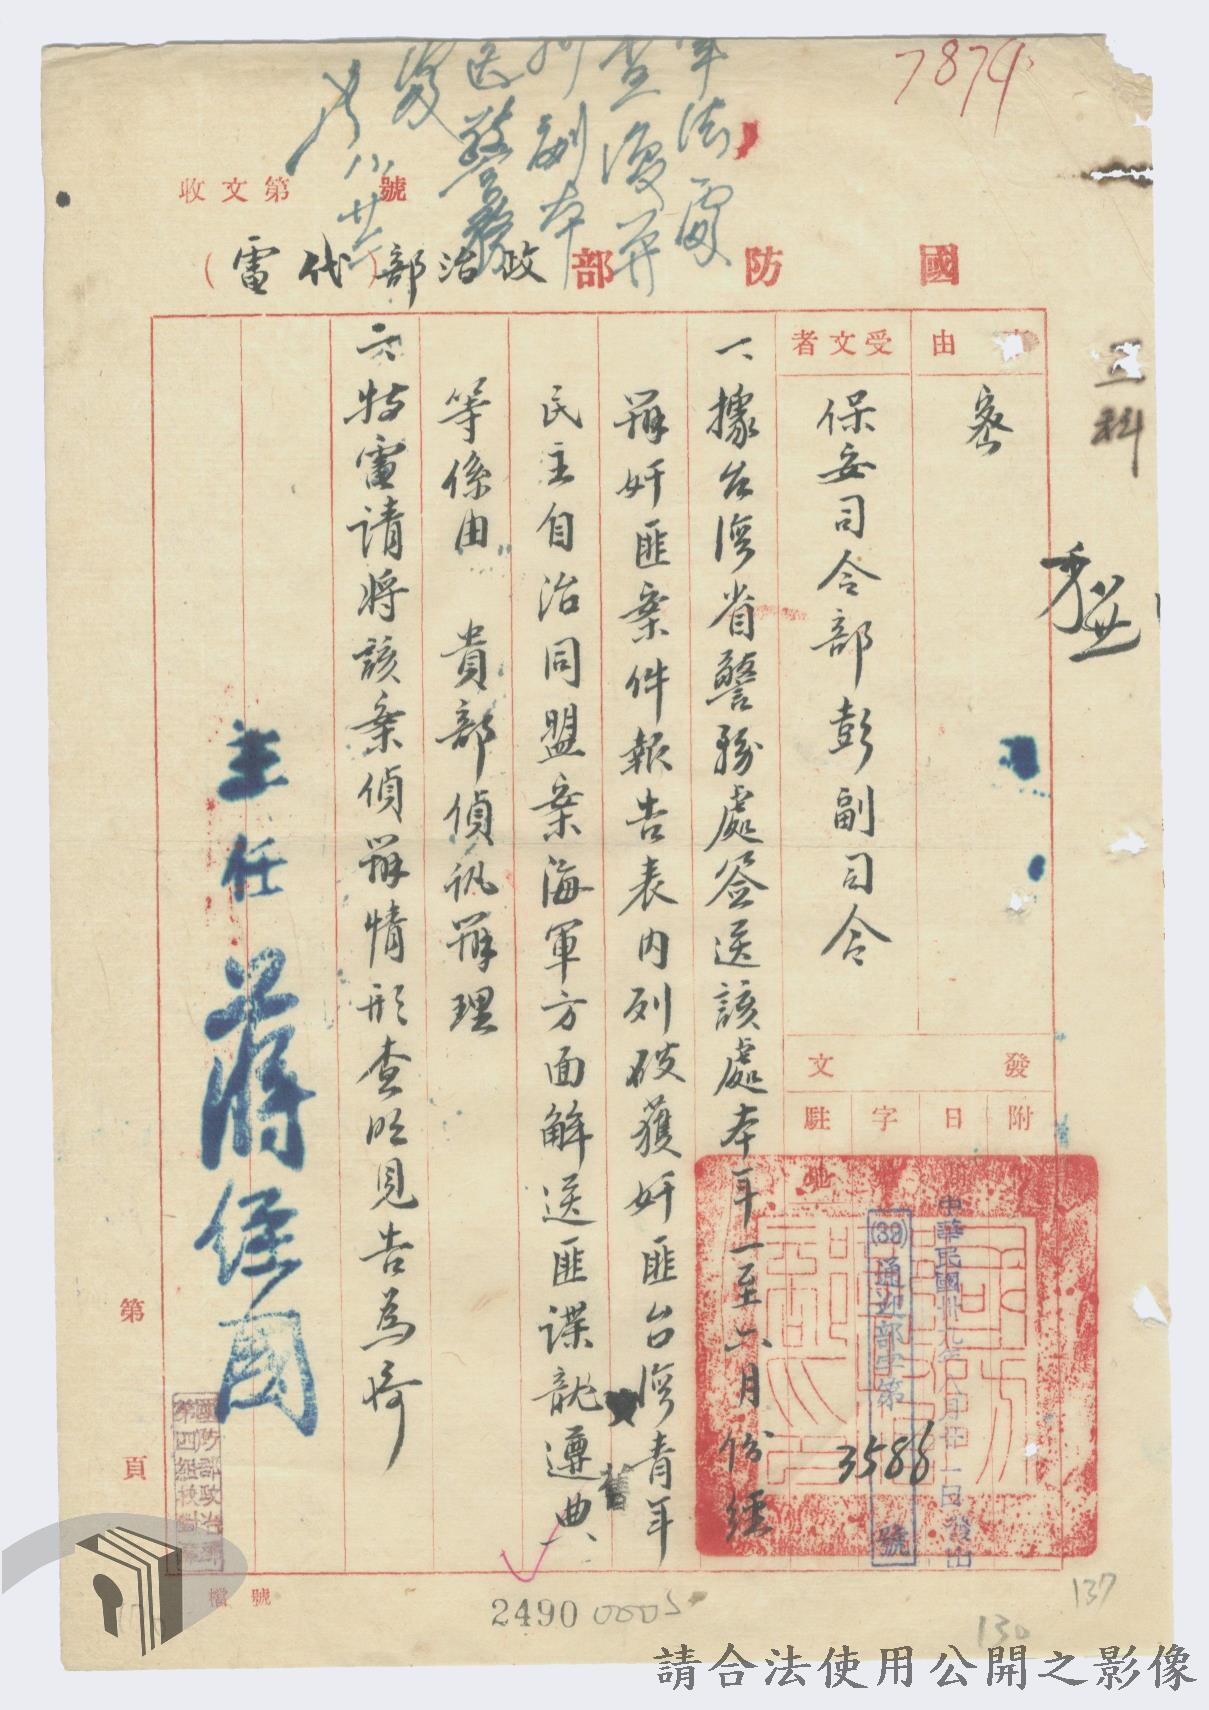 7879
軍法處
查復并
抄副本
送警務
處
收文第 號
國防部政治部(代電)
三科
事由
密
受文者
保安司令部彭副司令
發文
附 日 字 駐
地
中華民國卅九年八月廿一日發出
(39)通迎部字第3586號
一、據台灣省警務處簽送該處本年一至六月份經
辦奸匪案件報告表內列破獲奸匪台灣青年
民主自治同盟案海軍方面解送匪諜龍遵典、
舊
等係由 貴部偵訊辦理
二、特電請將該案偵辦情形查明見告為荷
主任 蔣經國
第 頁
檔號
2490 0005
137
130
請合法使用公開之影像